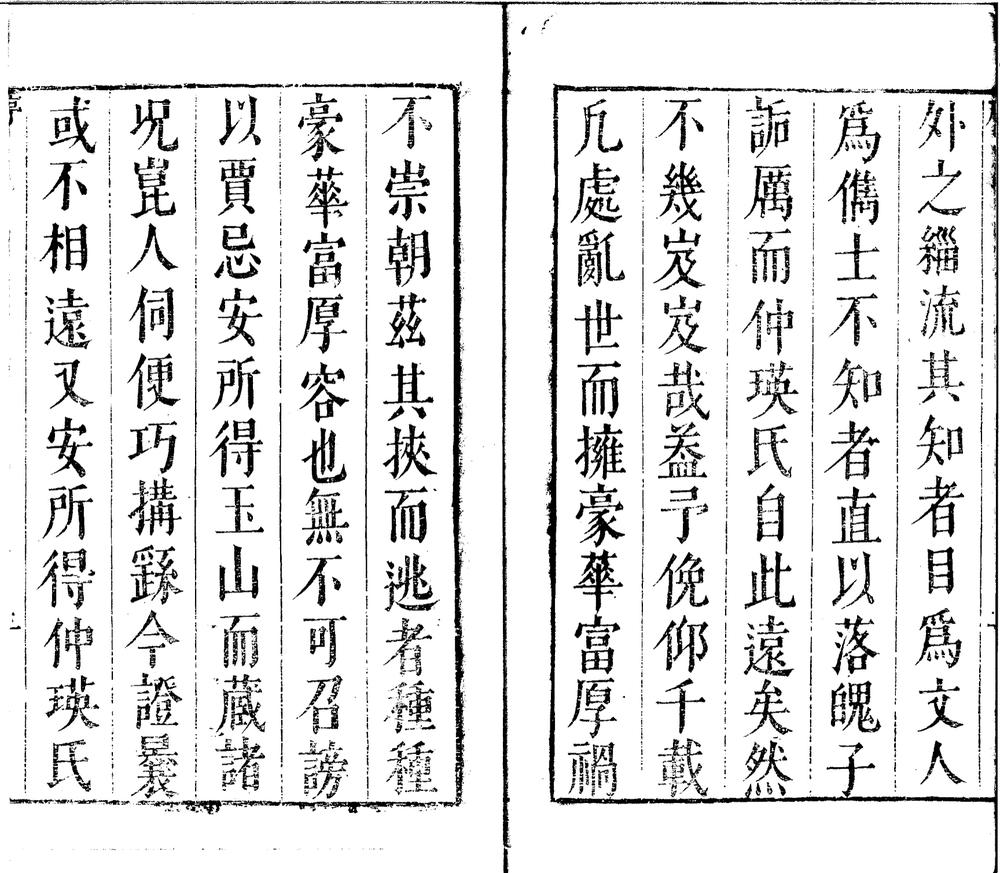 外之緇流其知者目爲文人
爲儁士不知者直以落魄子
詬厲而仲瑛氏自此遠矣然
不幾岌岌哉葢予俛仰千載
凡處亂世而擁豪華富厚禍
不崇朝茲其挾而逃者種種
豪華富厚容也無不可召謗
以賈忌安所得玉山而蔵諸
况崑人伺便巧搆繇今證曩
或不相遠又安所得仲瑛氏